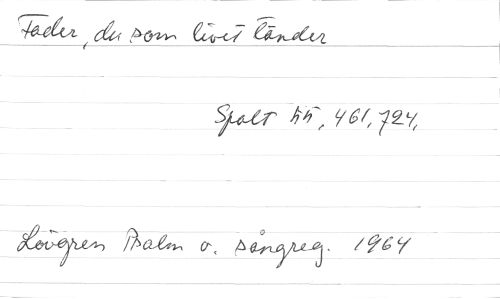 Fader, du som livet tänder
Spalt 55, 461, 724,
Lövgren Psalm o. sångreg. 1964